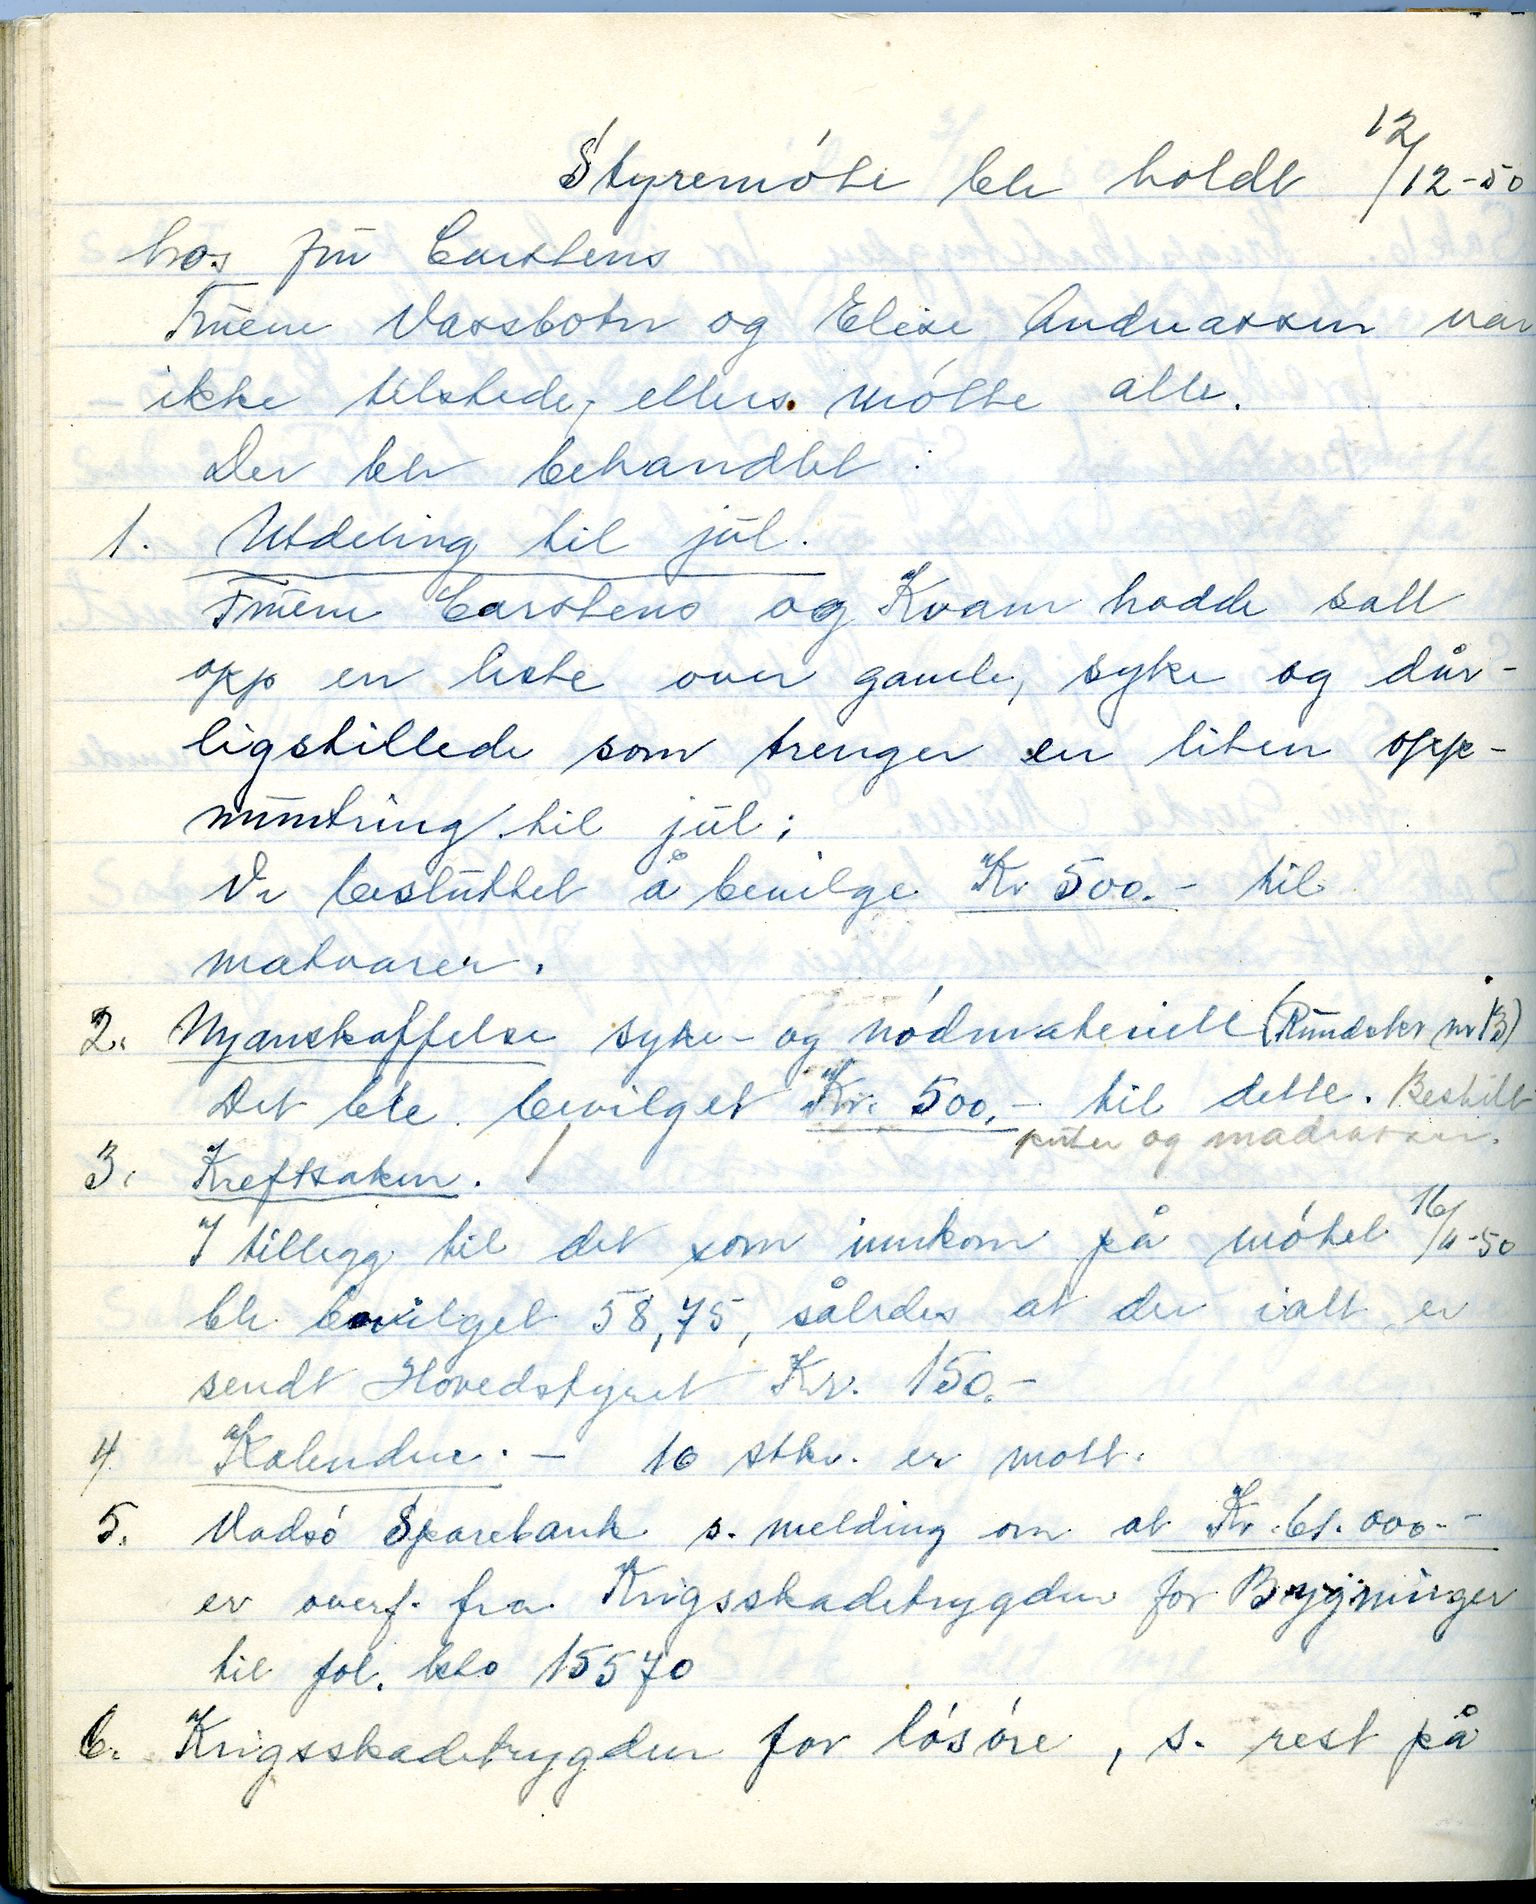 Styremöte ble holdt 12/12-50
hos fru Carstens
Fruene Vassbotn og Elise Andreassen var
ikke tilstede, ellers mötte alle.
Der ble behandlet:
1. Utdeling til jul.
Fruene Carstens og Kvam hadde satt
opp en liste over gamle, syke og dår-
ligstillede som trenger en liten opp-
muntring til jul;
Vi besluttet å bevilge Kr 500.- til
matvarer.
2. Nyanskaffelse syke- og nödmateriell (Rundskr nr 13)
Det ble bevilget Kr. 500,- til dette. Bestilt
puter og madrasser.
3. Kreftsaken.
I tillegg til det som innkom på mötet 16/11-50
ble bevilget 58,75, således at der ialt er
sendt Hovedstyret Kr. 150.-
4 Kalendere. - 16 stkr. er mott.
5. Vadsö Sparebank s. melding om at Kr. 61.000.-
er overf. fra Krigsskadetrygden for Bygninger
til fol. kto 15570
6. Krigsskadetrygden for lösöre, s. rest på